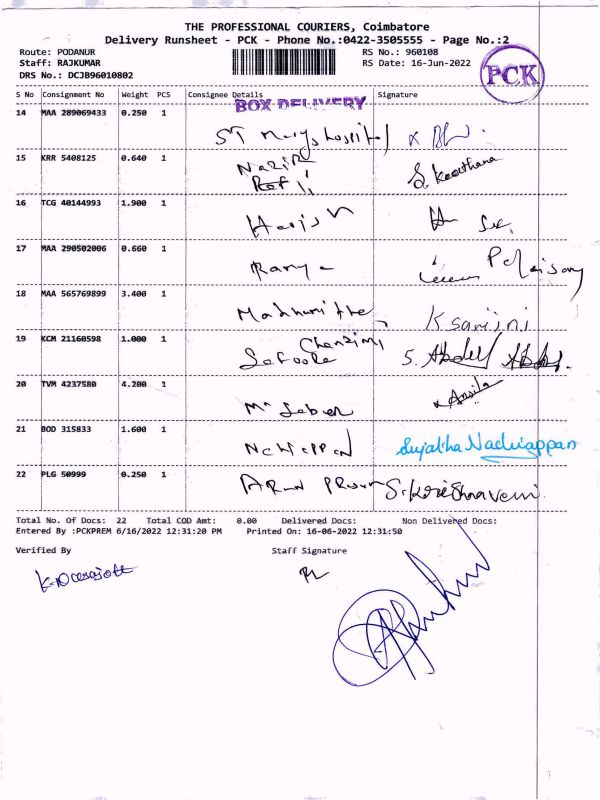 THE PROFESSIONAL COURIERS, Coimbatore
Delivery Runsheet - PCK - Phone No.:0422-3505555 - Page No.:2
Route: PODANUR
Staff: RAJKUMAR
DRS No.: DCJB96010802
RS No.: 960108
RS Date: 16-Jun-2022
PCK
S No Consignment No Weight PCS Consignee Details Signature
BOX DELIVERY
14 MAA 289069433 0.250 1
ST Marys hospital
15 KRR 5408125 0.640 1
Nazir
S. Keerthana
16 TCG 40144993 1.900 1
Harish
17 MAA 290502006 0.660 1
Ramya
18 MAA 565769899 3.400 1
K Sanjini
19 KCM 21160598 1.000 1
S. Abdul
20 TVM 4237580 4.200 1
21 BOD 315833 1.600 1
Sujatha Nachiappan
22 PLG 50999 0.250 1
Arun
S. Krishnaveni
Total No. Of Docs: 22 Total COD Amt: 0.00 Delivered Docs: Non Delivered Docs:
Entered By :PCKPREM 6/16/2022 12:31:20 PM Printed On: 16-06-2022 12:31:50
Verified By Staff Signature